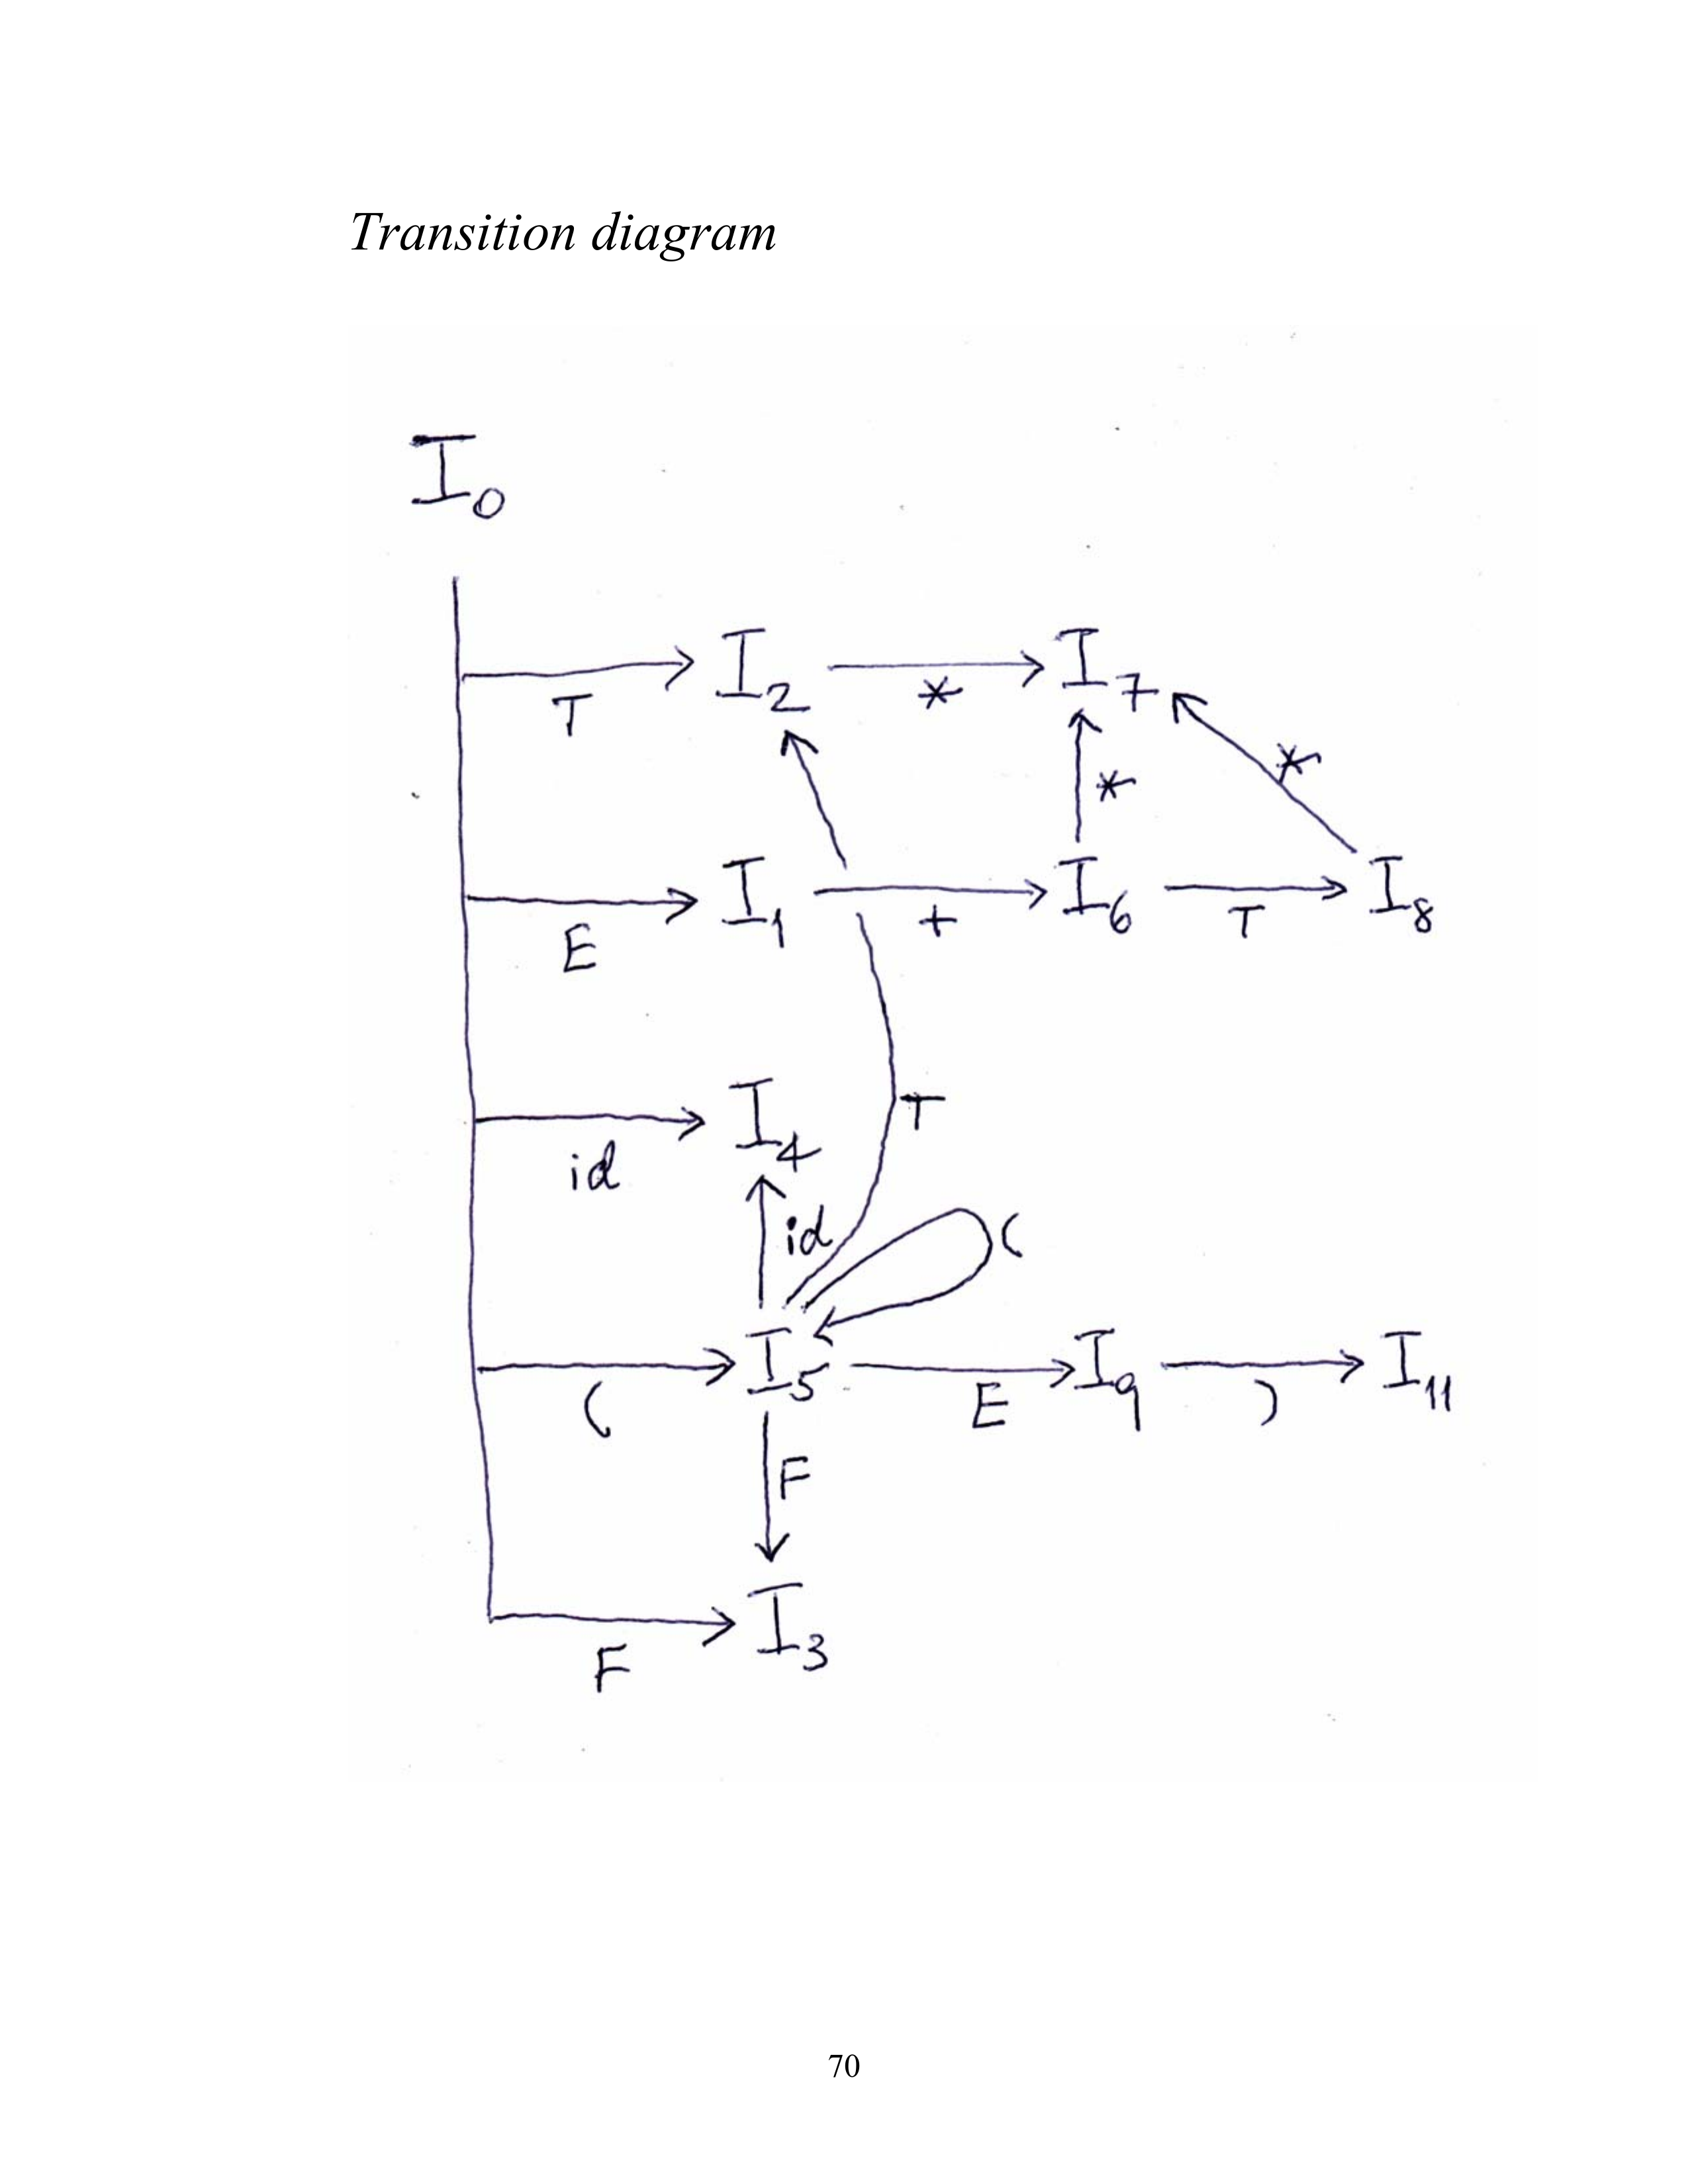 Transition diagram
I0
I2 I7
T *
* *
I1 I6 I8
E + T
I4 T
id
id (
I5 I9 I11
( E )
F
I3
F
70